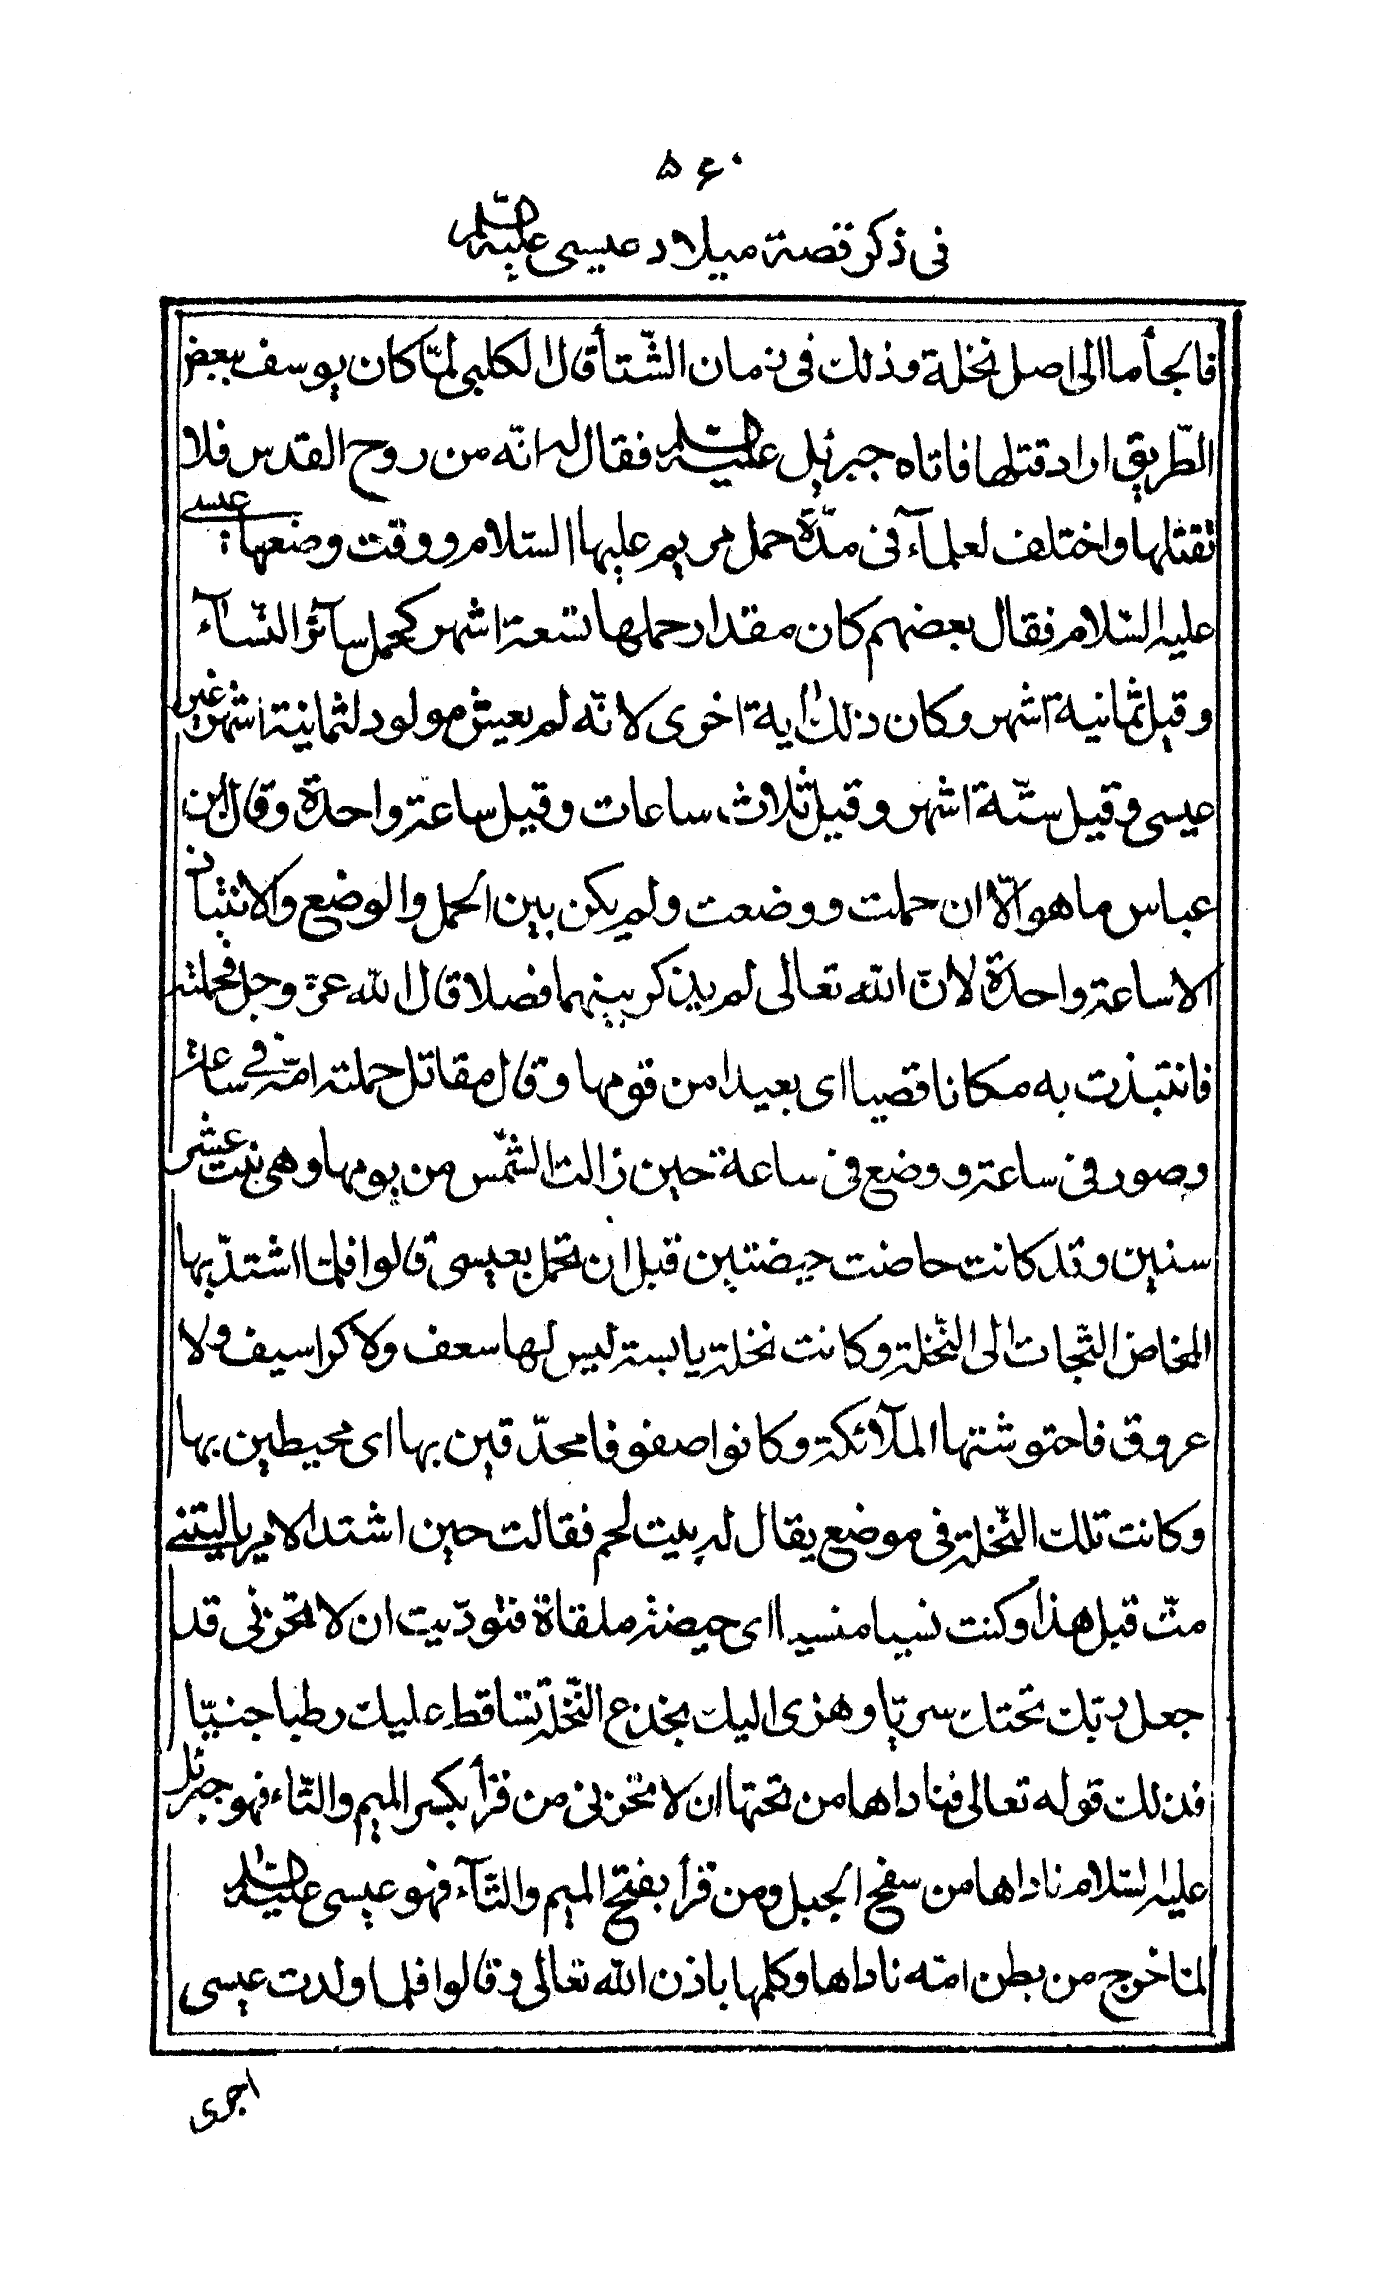 ۵۶۰
فی ذکر قصة میلاد عیسی علیه السلم
فالجأما الی اصل نخلة وذلك فی زمان الشّتأ قال الکلبی لمّا کان یوسف ببعض
الطّریق اراد قتلها فاتاه جبرئیل علیه السلم فقال له انّه من روح القدس فلا
تقتلها واختلف لعلمآء فی مدّة حمل مریم علیها السّلام ووقت وضعها عیسی
علیه السّلام فقال بعضهم کان مقدار حملها تسعة اشهر کحمل سآئر النّسآء
وقیل ثمانیة اشهر وکان ذلك ایة اخری لانّه لم یعیش مولود لثمانیة اشهر غیر
عیسی وقیل ستّة اشهر وقیل ثلاث ساعات وقیل ساعة واحدة وقال ابن
عباس ما هو الّا ان حملت ووضعت ولم یکن بین الحمل والوضع والانتباذ
الا ساعة واحدة لانّ الله تعالی لم یذکر بینهما فضلا قال الله عزّ وجل فحملته
فانتبذت به مکانا قصیا ای بعیدا من قومها وقال مقاتل حملته امّه فی ساعة
وصور فی ساعة ووضع فی ساعة حین زالت الشّمس من یومها وهی بنت عشر
سنین وقد کانت حاضت حیضتین قبل ان تحمل بعیسی قالوا فلمّا اشتدّ بها
المخاض التّجات الی النّخلة وکانت نخلة یابسة لیس لها سعف ولا کراسیف ولا
عروق فاحتوشتها الملآئکة وکانوا صفوفا محدّقین بها ای محیطین بها
وکانت تلك النّخلة فی موضع یقال له بیت لحم فقالت حین اشتد الامر یا لیتنی
متّ قبل هذا وکنت نسیا منسیا ای حیضة ملقاة فنودیت ان لا تحزنی قد
جعل ربّك تحتك سریّا وهزی الیك بجذع النّخلة تساقط علیك رطبا جنیّا
فذلك قوله تعالی فناداها من تحتها ان لا تحزنی من قرأ بکسر المیم والتّاء فهو جبرئل
علیه السّلام ناداها من سفح الجبل ومن قرأ بفتح المیم والتّآء فهو عیسی علیه السلم
لمّا خرج من بطن امّه ناداها وکلمها باذن الله تعالی وقالوا فلما ولدت عیسی
اجری